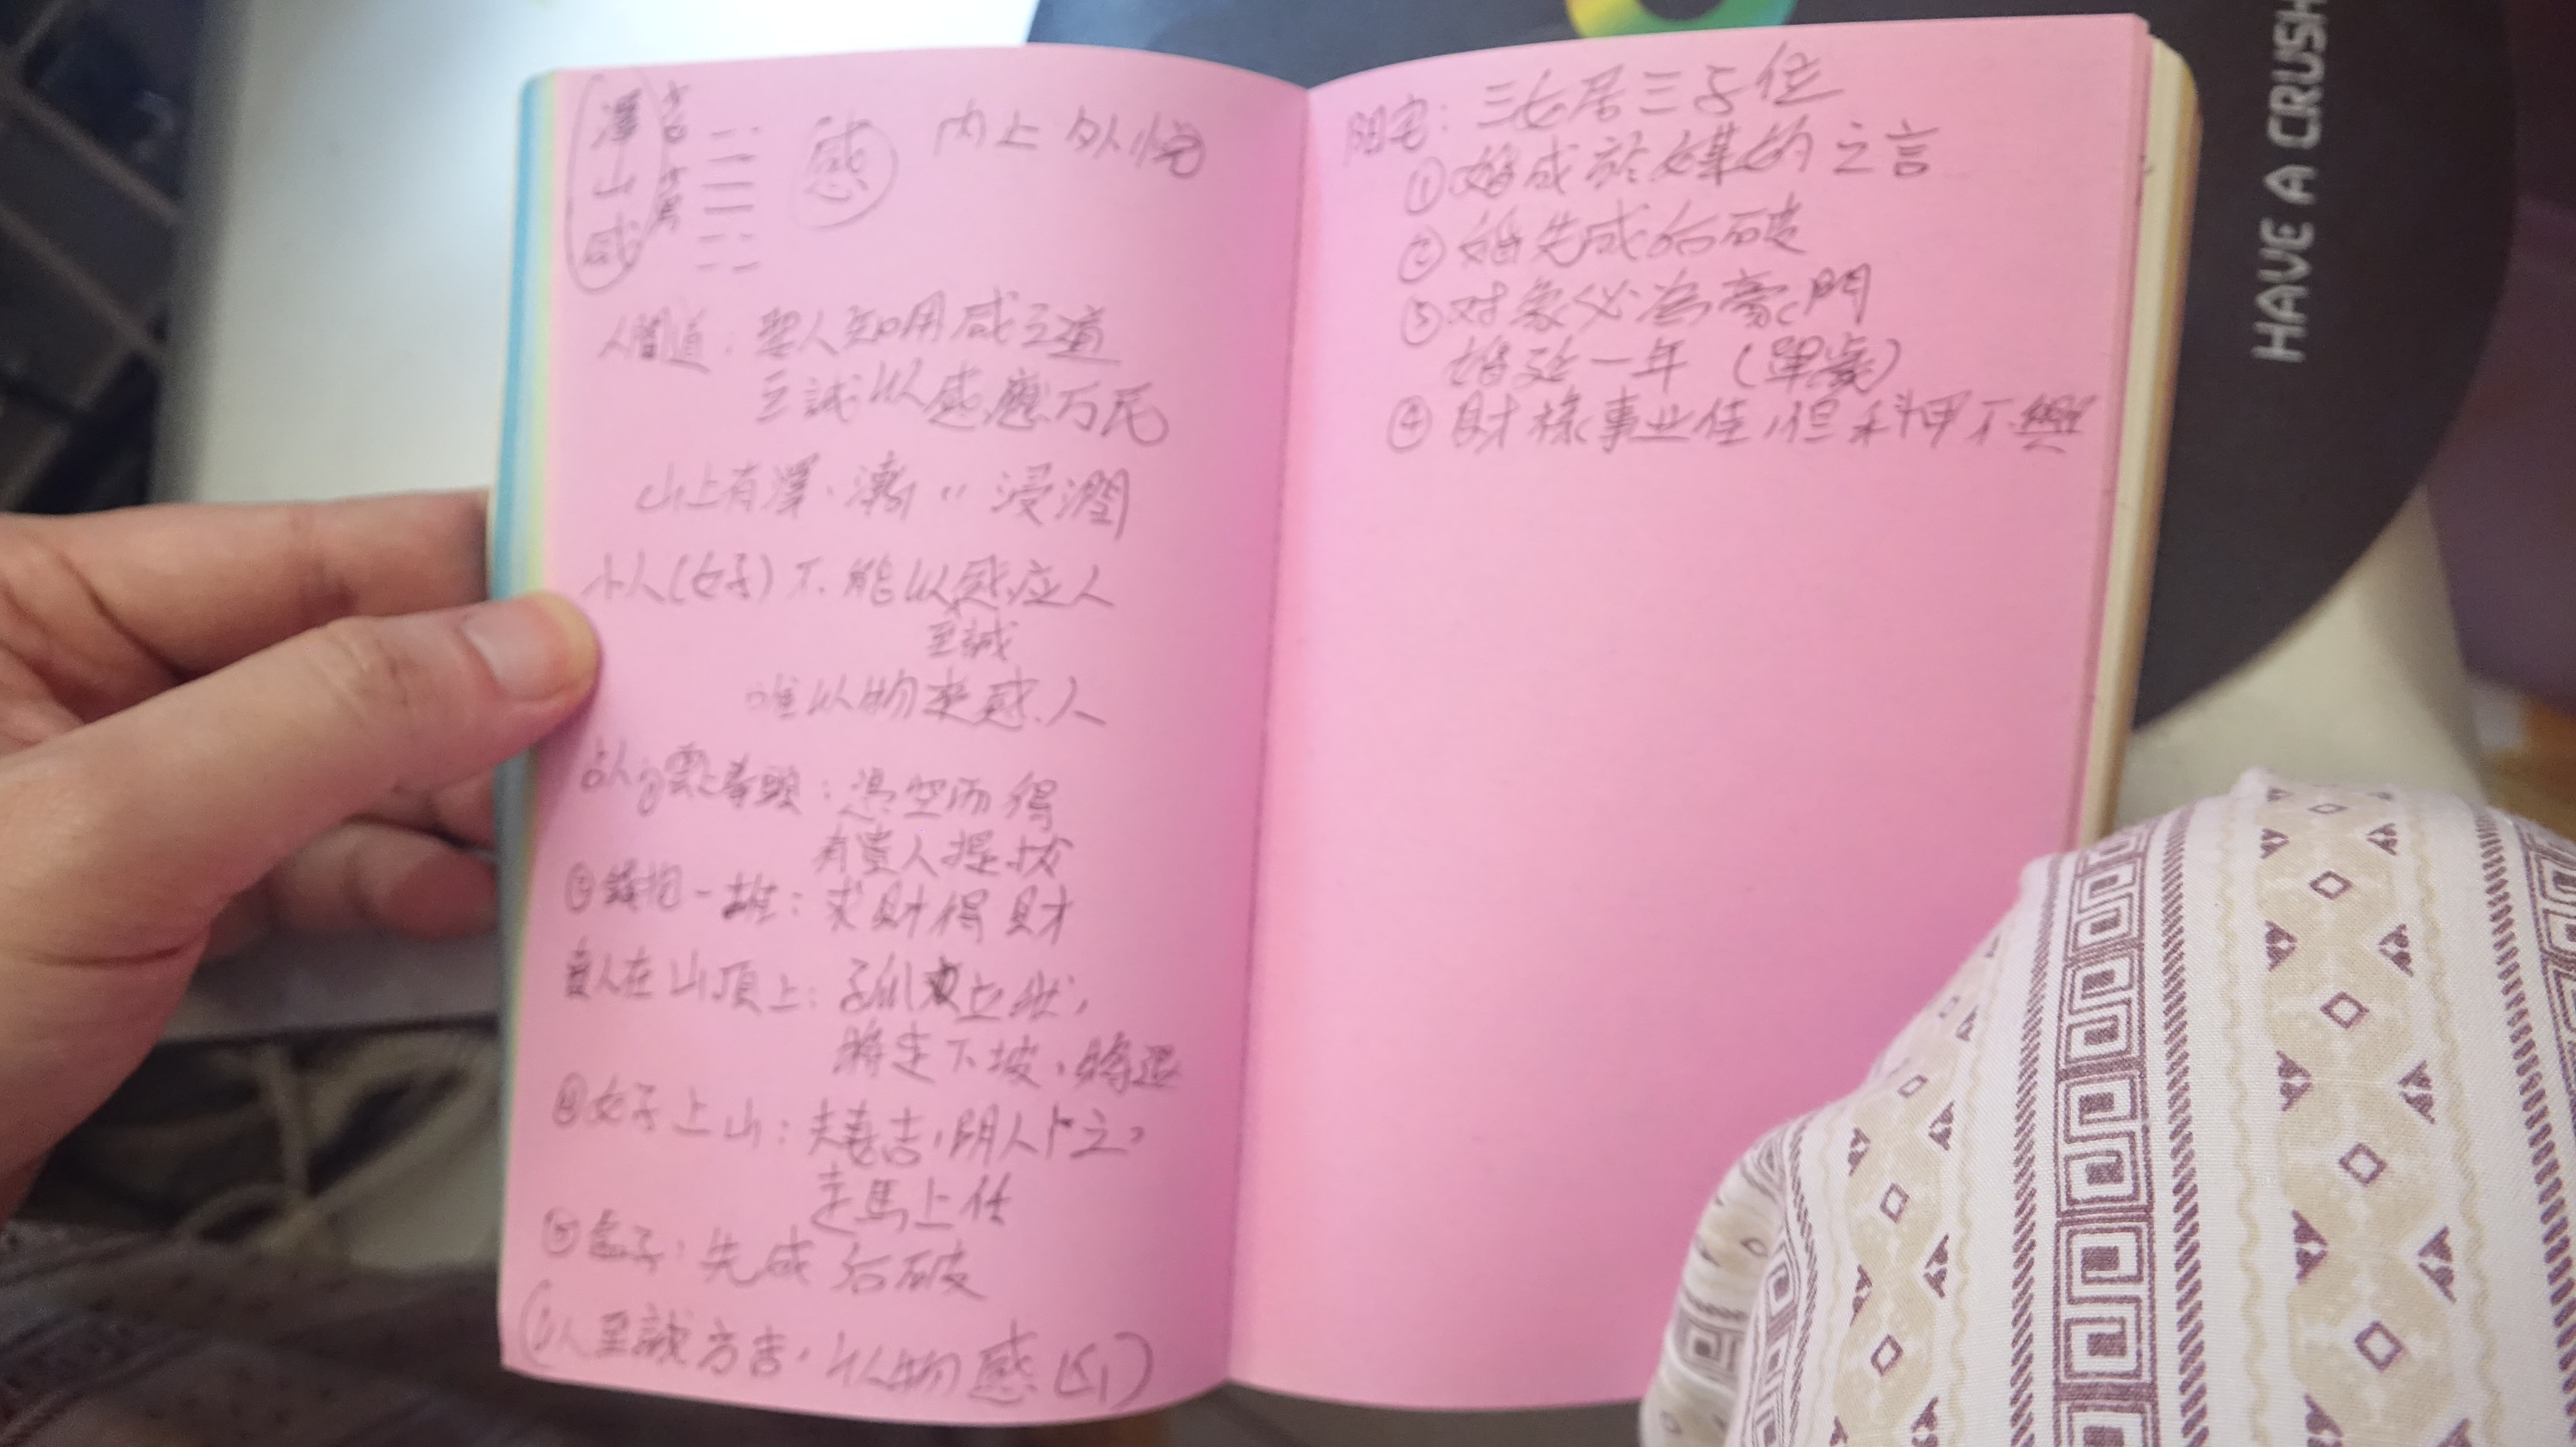 澤山咸
少女 少男
感 內止外悅
人間道：聖人知用咸之道
至誠以感應万民
山上有澤，漸〃浸潤
小人(女子)不能以感应人
至誠
唯以物來感人
占人 雲上拳頭：憑空而得
有貴人提拔
③錢抱一堆：求財得財
貴人在山頂上：孤立狀，
將走下坡，將退
④女子上山：夫義吉，陰人卜之，
走馬上任
⑤盒子：先成后破
(占人至誠方吉，以物感凶)
陽宅：三女居三子位
①婚成於媒妁之言
②婚先成后破
③对象必為豪門
婚延一年（單歲）
④財祿事业佳，但科甲不興
HAVE A CRUSH